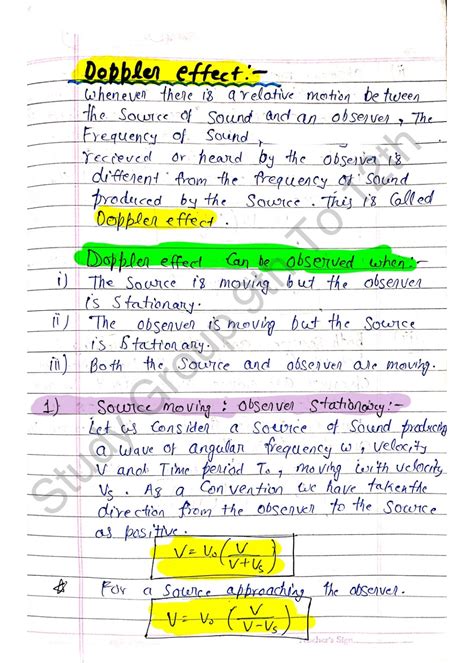 Doppler effect:-
Whenever there is a relative motion between
the Source of Sound and an observer, The
Frequency of Sound,
recieved or heard by the observer is
different from the frequency of Sound
produced by the Source. This is Called
Doppler effect.
Doppler effect Can be observed when:-
i) The Source is moving but the observer
is Stationary.
ii) The observer is moving but the Source
is Stationary.
iii) Both the Source and observer are moving.
1) Source moving : Observer Stationary:-
Let us Consider a Source of Sound producing
a wave of angular frequency ω, velocity
V and Time period T₀, moving with velocity
Vs. As a Convention we have taken the
direction from the observer to the Source
as positive.
V = V₀ (V/(V+Vs))
☆ For a Source approaching the observer.
V = V₀ (V/(V-Vs))
Teacher's Sign
Study Group 9th To 12th